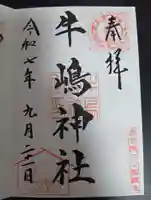 奉拝
牛嶋神社
令和七年 九月二十一日